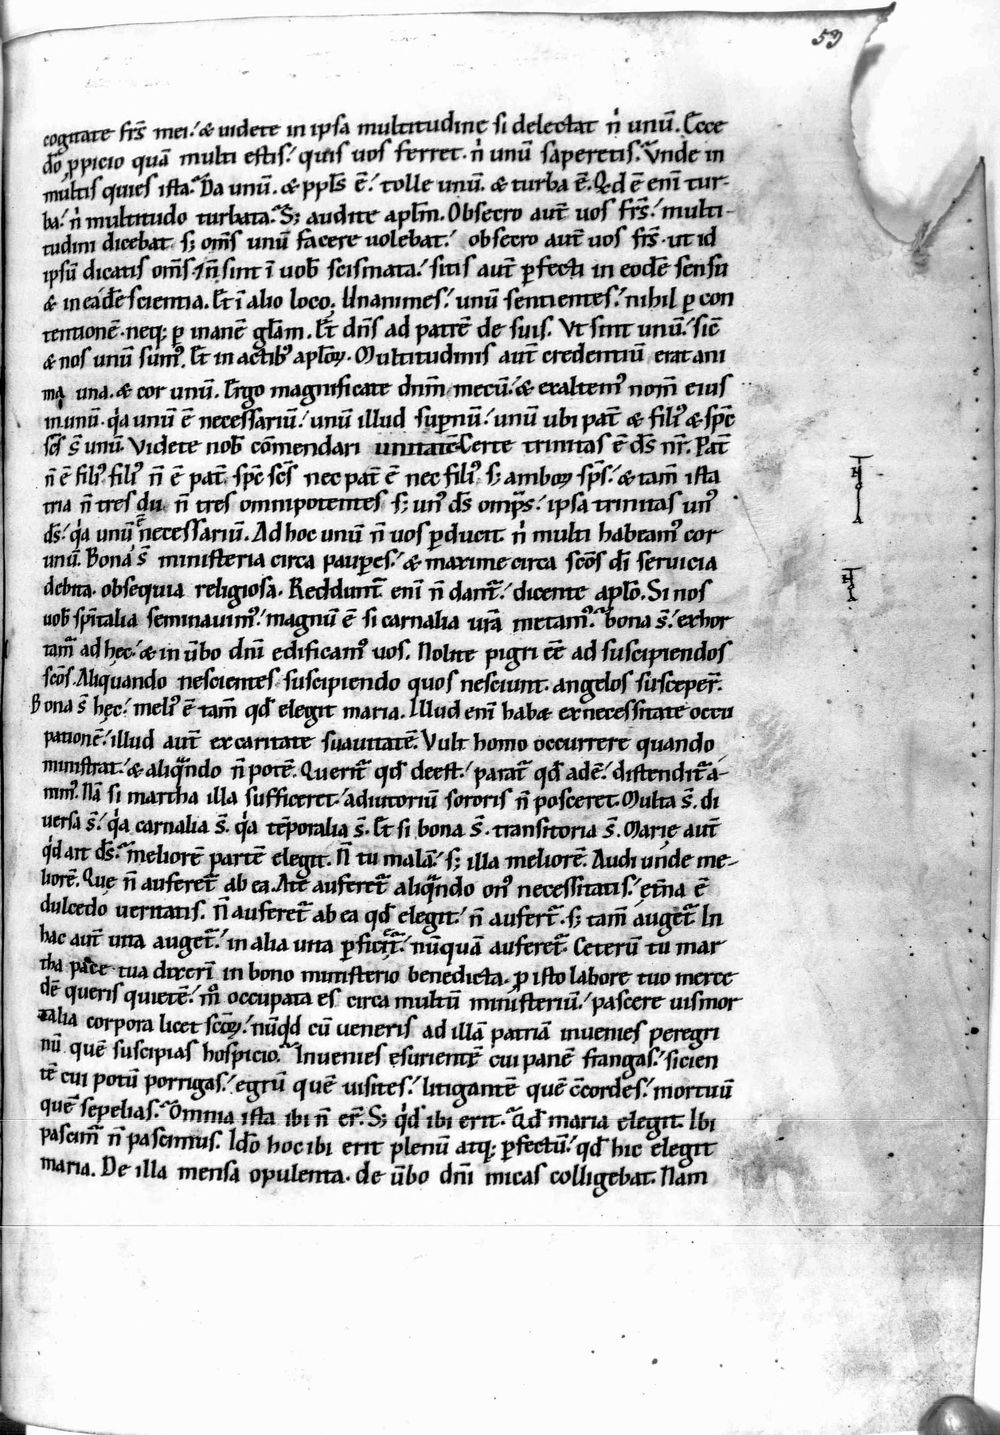 59
cogitate fr̄s mei.' & uidete in ipsa multitudine si delectat n̍ unū. Ecce
dō ꝓpicio quā multi estis.' quis uos ferret. n̍ unū saperetis. Vnde in
multis quies ista. Da unū. & ppl̄s ē.' tolle unū. & turba ē. Qd ē enī tur-
ba.' n̍ multitudo turbata. S; audite apl̄m. Obsecro aut̄ uos fr̄s.' multi-
tudini dicebat s; om̄s unū facere uolebat.' obsecro aut̄ uos fr̄s. ut id
ipsū dicatis om̄s.' & n̄ sint ī uob̄ scismata.' sitis aut̄ ꝑfecti in eodē sensu
& in eadē scientia. Et ī alio loco; Unanimes.' unū sentientes.' nihil ꝑ con
tentionē. neq; ꝑ inanē gl̄am. Et dn̄s ad patrē de suis. Vt sint unū.' sic̄
& nos unū sumꝰ. Et in actibꝰ apl̄oꝝ. Multitudinis aut̄ credentiū erat ani
ma una. & cor unū. Ergo magnificate dn̄m mecū.' & exaltemꝰ nom̄ eius
in unū. q̍a unū ē necessariū.' unū illud supnū.' unū ubi pat̄ & filiꝰ & sp̄c
sc̄s s̄ unū. Videte nob̄ cōmendari unitatē. Certe trinitas ē. ds̄ nr̄. Pat̄
n̄ ē filiꝰ. filiꝰ n̄ ē pat̄. sp̄c sc̄s nec pat̄ ē nec filiꝰ. s; amboꝝ sp̄s.' & tam̄ ista
tria n̄ tres dii. n̄ tres omnipotentes s; unꝰ ds̄ omp̄s.' ipsa trinitas unꝰ
ds̄.' q̍a unū ē necessariū. Ad hoc unū n̄ uos ꝑducit. n̍ multi habeamꝰ cor
unū. Bona s̄ ministeria circa pauꝑes.' & maxime circa sc̄os dī seruicia
debita. obsequia religiosa. Reddunt̄ enī n̄ dant̄.' dicente apl̄o. Si nos
uob̄ sp̄italia seminauimꝰ.' magnū ē si carnalia ur̄a metamꝰ. bona s̄.' exhor
tam̄ ad hec.' & in ūbo dnī edificamꝰ uos. Nolite pigri eē ad suscipiendos
sc̄os. Aliquando nescientes suscipiendo quos nesciunt. angelos susceper̄.
Bona s̄ hec.' meliꝰ ē tam̄ qd̄ elegit maria. Illud enī habet ex necessitate occu
pationē.' illud aut̄ ex caritate suauitatē. Vult homo occurrere quando
ministrat.' & aliqando n̄ potē. Querit̄ qd̄ deest.' parat̄ qd̄ adē.' distendit̄ a-
nimꝰ. Nā si martha illa sufficeret.' adiutoriū sororis n̄ posceret. Multa s̄. di
uersa s̄.' q̍a carnalia s̄. q̍a tēporalia s̄. Et si bona s̄. transitoria s̄. Marie aut̄
q̍d ait ds̄. meliorē partē elegit. N̄ tu malā.' s; illa meliorē. Audi unde me-
liorē. Que n̄ auferet̄ ab ea. A te auferet̄ aliqando onꝰ necessitatis.' et̄na ē
dulcedo ueritatis. N̄ auferet̄ ab ea qd̄ elegit.' n̄ aufert̄. s; tam̄ auget̄. In
hac aut̄ uita auget̄.' in alia uita ꝑficiet̄.' nūquā auferet̄. Ceterū tu mar
tha pace tua dixerī in bono ministerio benedicta. ꝑ isto labore tuo merce
dē queris quietē.' m̊ occupata es circa multū ministeriū.' pascere uis mor
talia corpora licet sc̄oꝝ.' nūqd cū ueneris ad illā patriā inuenies peregri
nū quē suscipias hospicio. Inuenies esurientē cui panē frangas.' sicien
tē cui potū porrigas.' egrū quē uisites.' litigantē quē c̄cordes.' mortuū
quē sepelias. Omnia ista ibi n̄ er̄. S; q̍d ibi erit. Qd̄ maria elegit. Ibi
pascim̄ n̄ pascimus. Ido hoc ibi erit plenū atq; ꝑfectū.' qd̄ hic elegit
maria. De illa mensa opulenta. de ūbo dnī micas colligebat. Nam